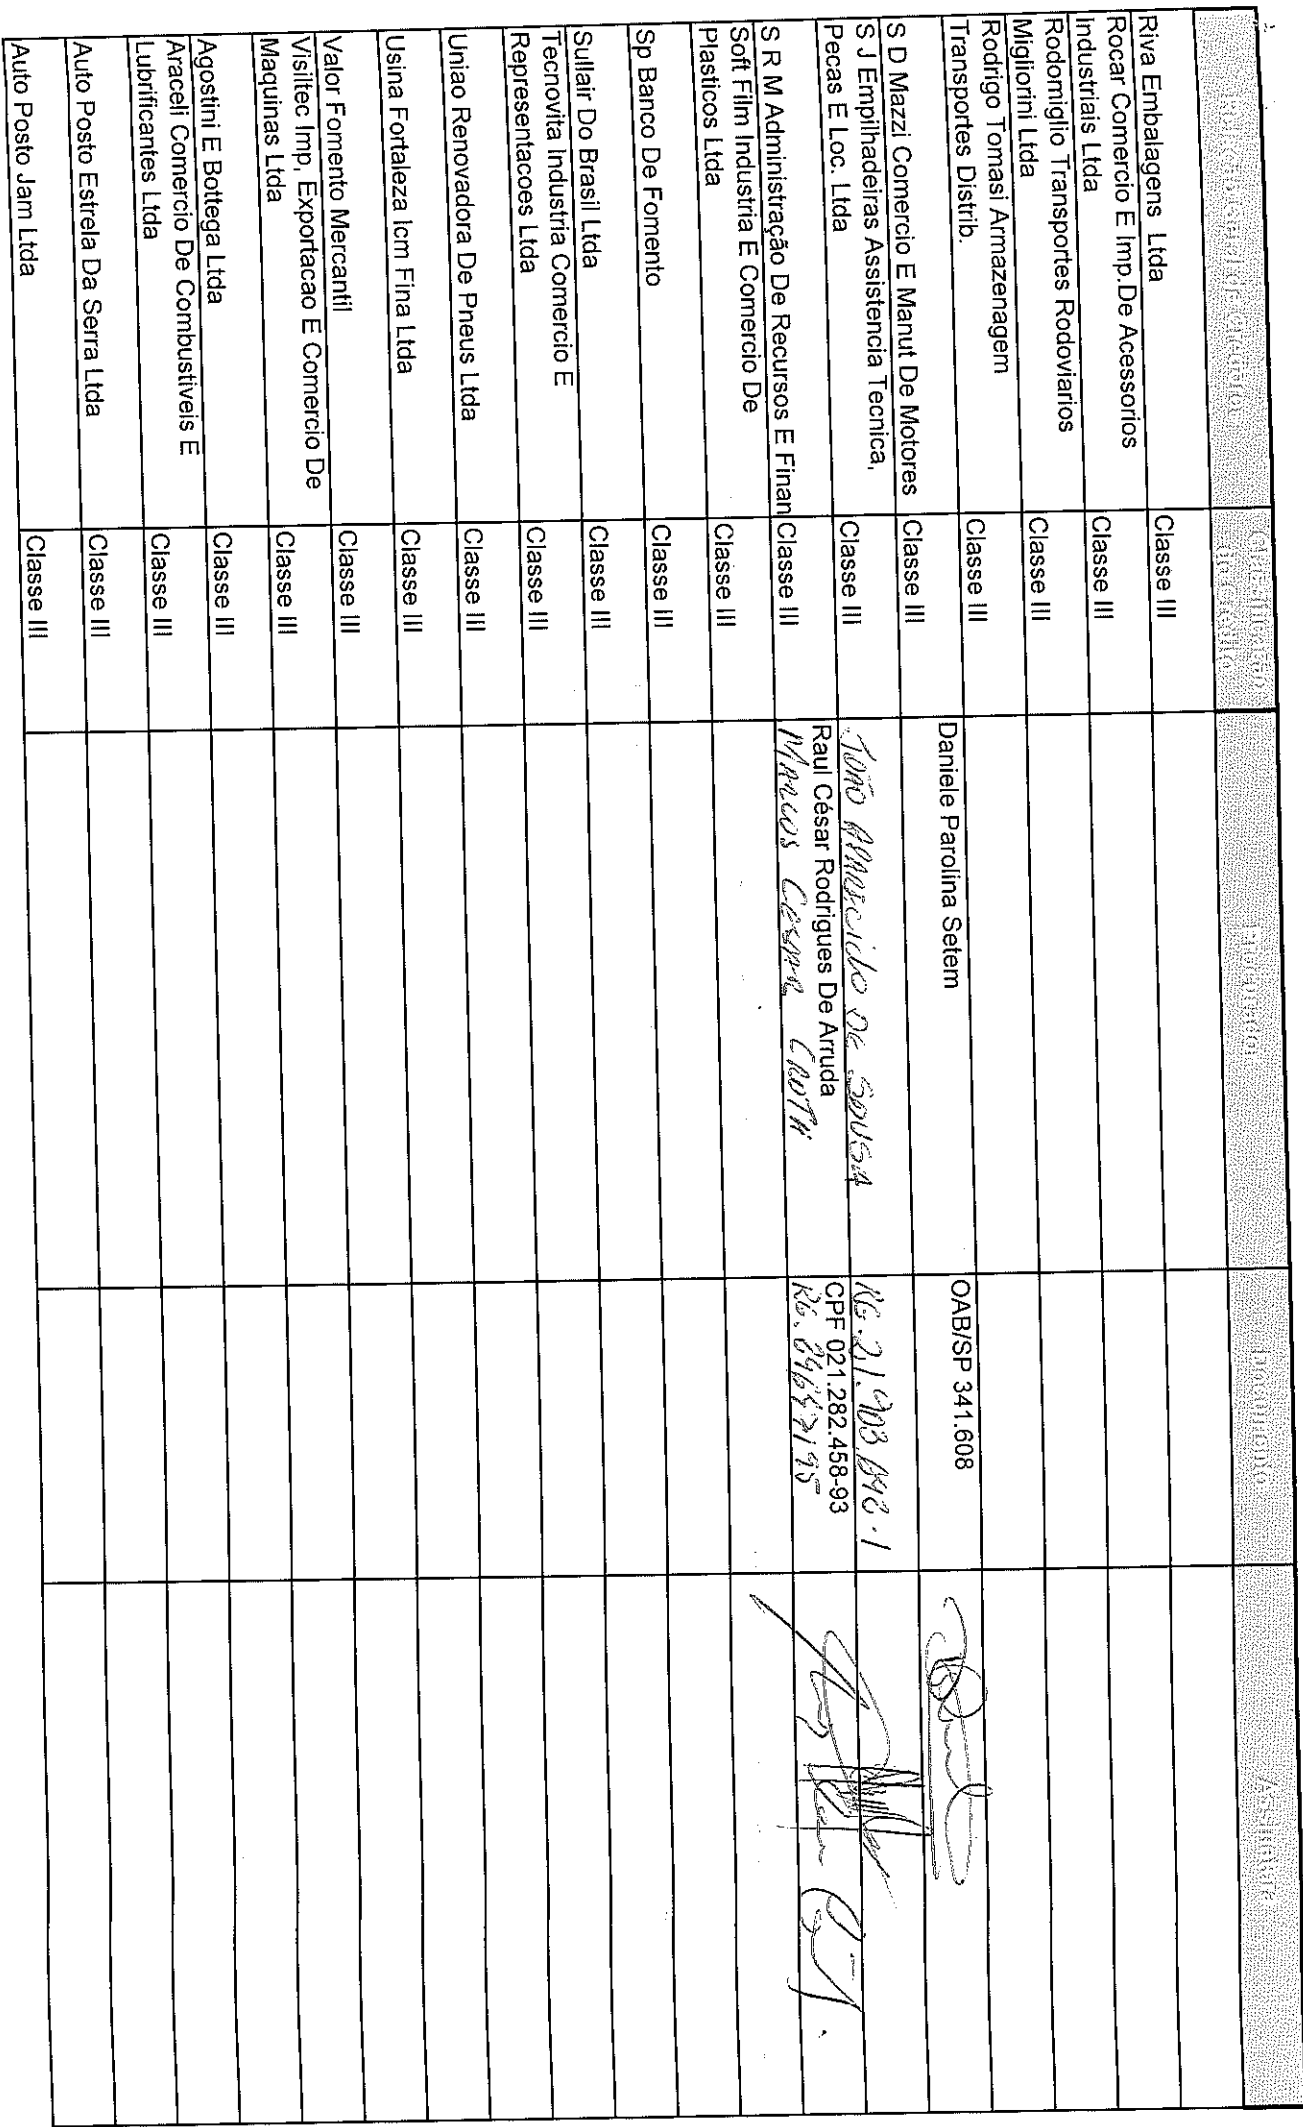 Procurador
Documento
Assinatura
Riva Embalagens Ltda
Classe III
Rocar Comercio E Imp.De Acessorios
Industriais Ltda
Classe III
Rodomiglio Transportes Rodoviarios
Migliorini Ltda
Classe III
Rodrigo Tomasi Armazenagem
Transportes Distrib.
Classe III
Daniele Parolina Setem
OAB/SP 341.608
S D Mazzi Comercio E Manut De Motores
Classe III
S J Empilhadeiras Assistencia Tecnica,
Pecas E Loc. Ltda
Classe III
João Aparecido de Sousa
RG.21.903
Raul César Rodrigues De Arruda
CPF 021.282.458-93
S R M Administração De Recursos E Finan
Classe III
Marcos Cesar
RG.
Soft Film Industria E Comercio De
Plasticos Ltda
Classe III
Sp Banco De Fomento
Classe III
Sullair Do Brasil Ltda
Classe III
Tecnovita Industria Comercio E
Representacoes Ltda
Classe III
Uniao Renovadora De Pneus Ltda
Classe III
Usina Fortaleza Icm Fina Ltda
Classe III
Valor Fomento Mercantil
Classe III
Visiltec Imp, Exportacao E Comercio De
Maquinas Ltda
Classe III
Agostini E Bottega Ltda
Classe III
Araceli Comercio De Combustiveis E
Lubrificantes Ltda
Classe III
Auto Posto Estrela Da Serra Ltda
Classe III
Auto Posto Jam Ltda
Classe III